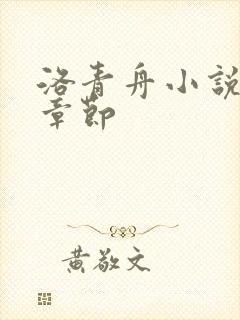 洛青舟小說
章節
黃敬文